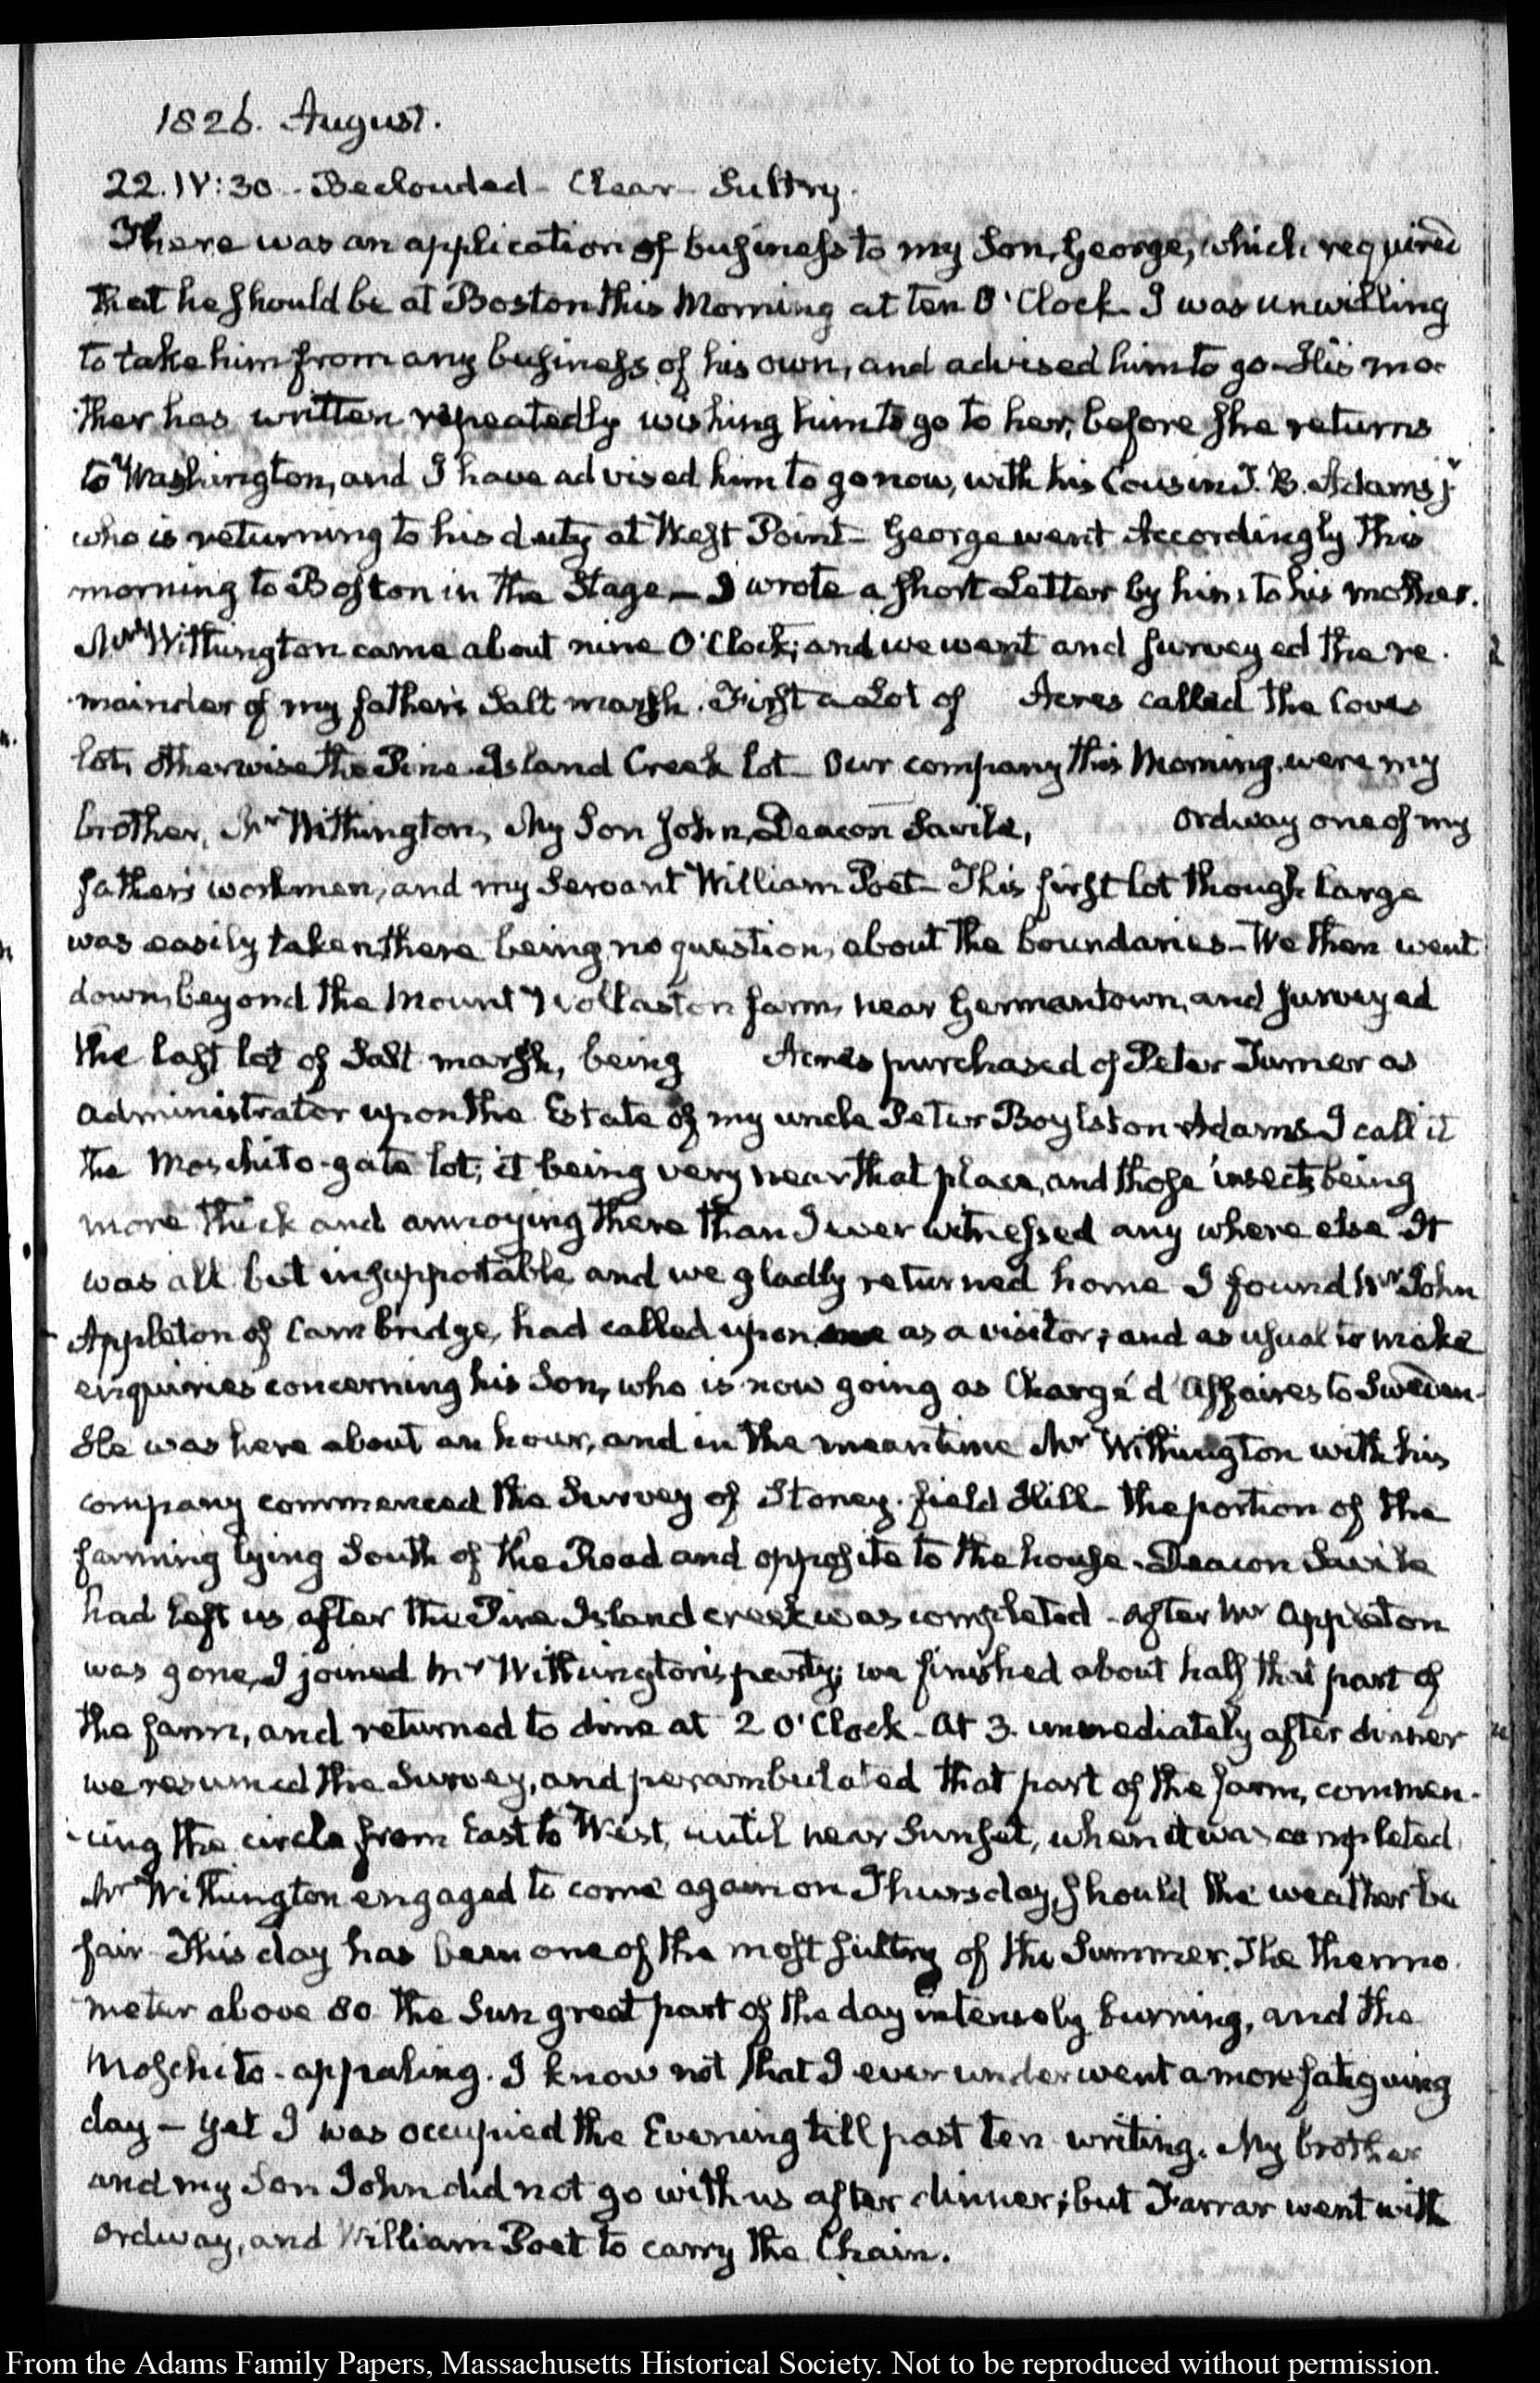 1826. August.
22. IV:30. Beclouded - Clear - Sultry.
There was an application of business to my Son, George, which required
that he should be at Boston this Morning at ten O'Clock. I was unwilling
to take him from any business of his own, and advised him to go - His mo-
ther has written repeatedly wishing him to go to her, before she returns
to Washington, and I have advised him to go now, with his Cousin T. B. Adams jr
who is returning to his duty at West Point - George went Accordingly this
morning to Boston in the Stage - I wrote a short Letter by him to his mother.
Mr Withington came about nine O'Clock; and we went and surveyed the re-
mainder of my father's Salt marsh. First a Lot of Acres called the Coves
lot, otherwise the Pine Island Creek lot - Our company this Morning, were my
brother, Mr Withington, My Son John, Deacon Savile, Ordway one of my
father's workmen, and my Servant William Poet - This first lot though large
was easily taken, there being no question, about the boundaries - We then went
down, beyond the Mount Wollaston farm, near Germantown, and surveyed
the last lot of Salt marsh, being Acres purchased of Peter Turner as
administrator upon the Estate of my uncle Peter Boylston Adams. I call it
the Moschito-gate lot; it being very near that place, and those insects being
more thick and annoying there than I ever witnessed any where else It
was all but insupportable and we gladly returned home I found Mr John
Appleton of Cambridge, had called upon me as a visitor; and as usual to make
enquiries concerning his Son, who is now going as Chargé d'Affaires to Sweden.
He was here about an hour, and in the meantime Mr Withington with his
company commenced the Survey of Stoney-field Hill - the portion of the
farming lying South of the Road and opposite to the house. Deacon Savile
had left us after the Pine Island creek was completed - After Mr Appleton
was gone, I joined Mr Withington's party; we finished about half that part of
the farm, and returned to dine at 2 O'Clock - At 3. immediately after dinner
we resumed the Survey, and perambulated that part of the farm, commen-
cing the circle from East to West, until near Sunset, when it was completed
Mr Withington engaged to come again on Thursday, should the weather be
fair - This day has been one of the most sultry of the Summer. The thermo-
meter above 80 the Sun great part of the day intensely burning, and the
Moschito-appaling. I know not that I ever underwent a more fatiguing
day - Yet I was occupied the Evening till past ten writing. My brother
and my Son John did not go with us after dinner; but Farrar went with
Ordway, and William Poet to carry the Chain.
From the Adams Family Papers, Massachusetts Historical Society. Not to be reproduced without permission.